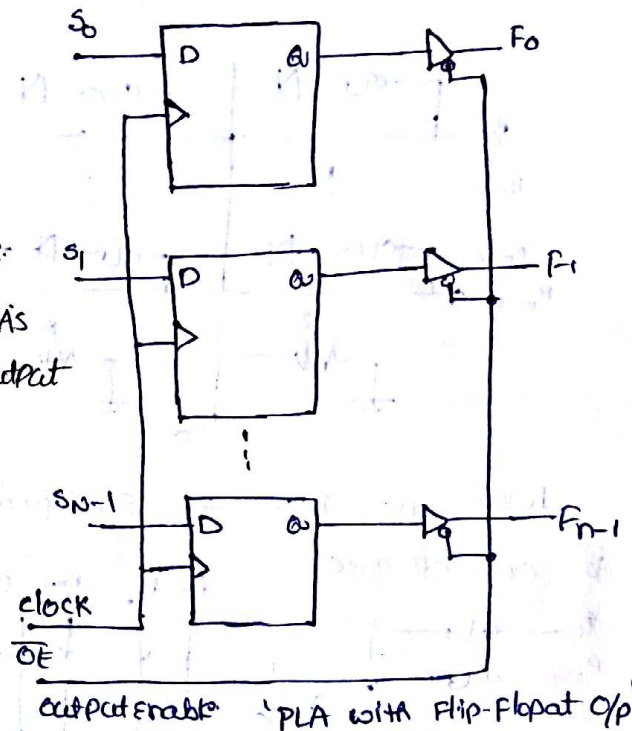 S0
D Q
F0
S1
D Q
F1
As
output
SN-1
D Q
Fn-1
clock
OE
output Enable 'PLA with Flip-Flop at O/p'